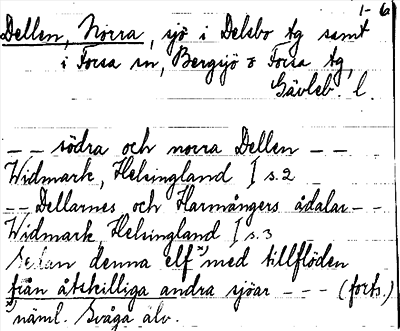 1- 6a
Dellen, Norra, sjö i Delsbo tg samt
i Forsa sn, Bergsjö o Forsa tg,
Gävleb. l.
-- södra och norra Dellen --
Widmark, Helsingland I s.2
-- Dellarnes och Harmångers ådalar --
Widmark, Helsingland I s.3
Sedan denna elf x) med tillflöden
från åtskilliga andra sjöar --- (forts.)
x) näml. Svåga älv.